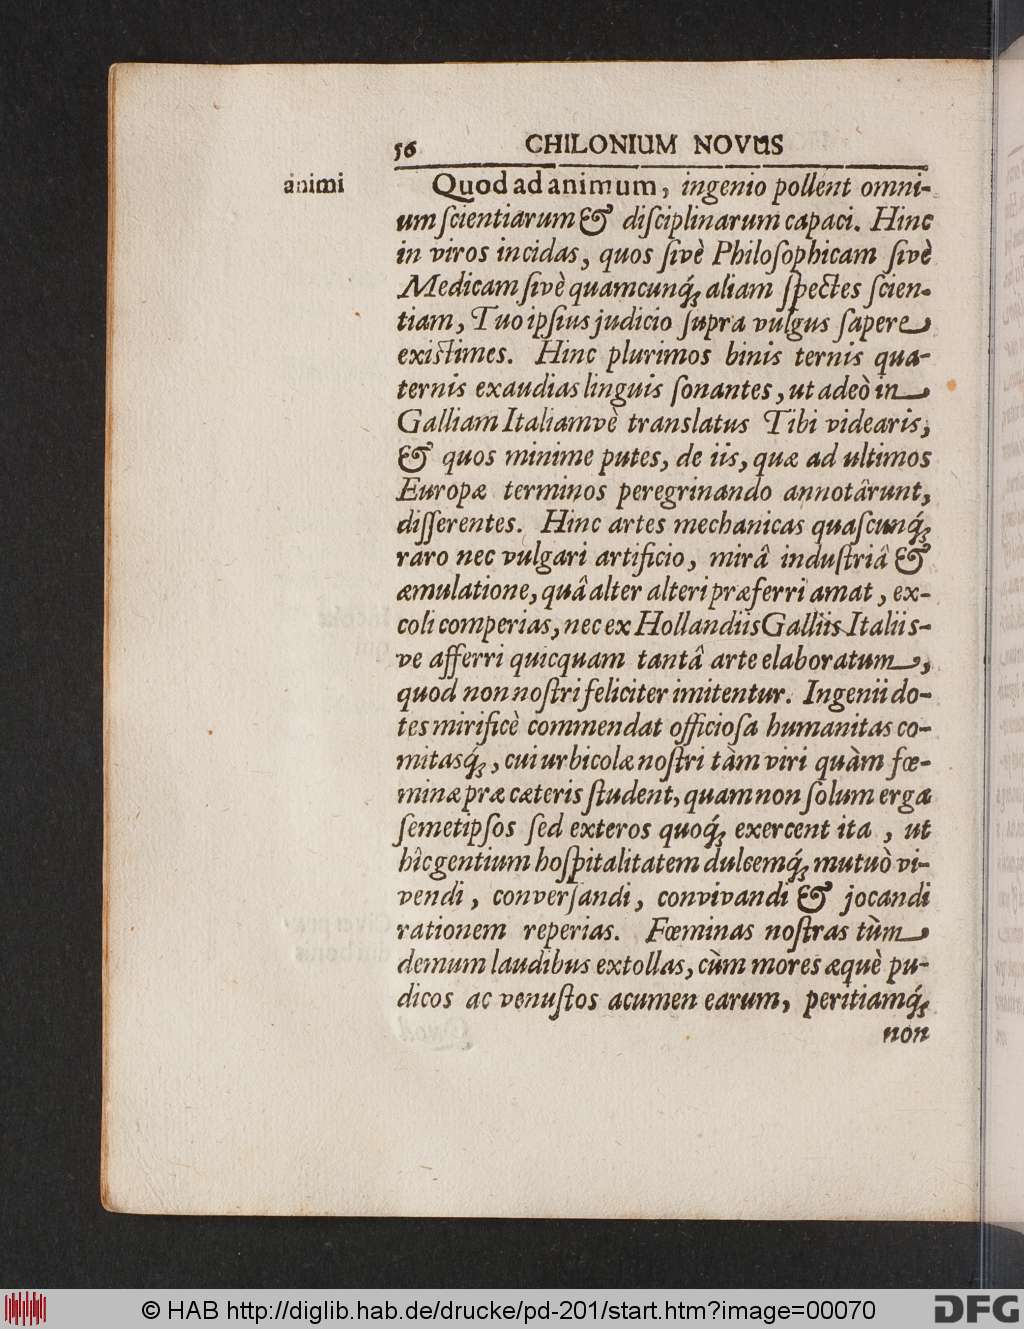 56 CHILONIUM NOVUS
animi
Quod ad animum, ingenio pollent omni-
um ſcientiarum & diſciplinarum capaci. Hinc
in viros incidas, quos ſivè Philoſophicam ſivè
Medicam ſivè quamcunq́; aliam ſpectes ſcien-
tiam, Tuo ipſius judicio ſupra vulgus ſapere
exiſtimes. Hinc plurimos binis ternis qua-
ternis exaudias linguis ſonantes, ut adeò in
Galliam Italiamvè translatus Tibi videaris;
& quos minime putes, de iis, quæ ad ultimos
Europæ terminos peregrinando annotârunt,
differentes. Hinc artes mechanicas quaſcunq́;
raro nec vulgari artificio, mirâ induſtriâ &
æmulatione, quâ alter alteri præferri amat, ex-
coli comperias, nec ex Hollandiis Galliis Italiis-
ve afferri quicquam tantâ arte elaboratum,
quod non noſtri feliciter imitentur. Ingenii do-
tes mirificè commendat officioſa humanitas co-
mitasq́;, cui urbicolæ noſtri tàm viri quàm fœ-
minæ præ cæteris ſtudent, quam non ſolum erga
ſemetipſos ſed exteros quoq́; exercent ita, ut
hîc gentium hoſpitalitatem dulcemq́; mutuò vi-
vendi, converſandi, convivandi & jocandi
rationem reperias. Fœminas noſtras tùm
demum laudibus extollas, cùm mores æquè pu-
dicos ac venuſtos acumen earum, peritiamq́;
non
© HAB http://diglib.hab.de/drucke/pd-201/start.htm?image=00070
DFG